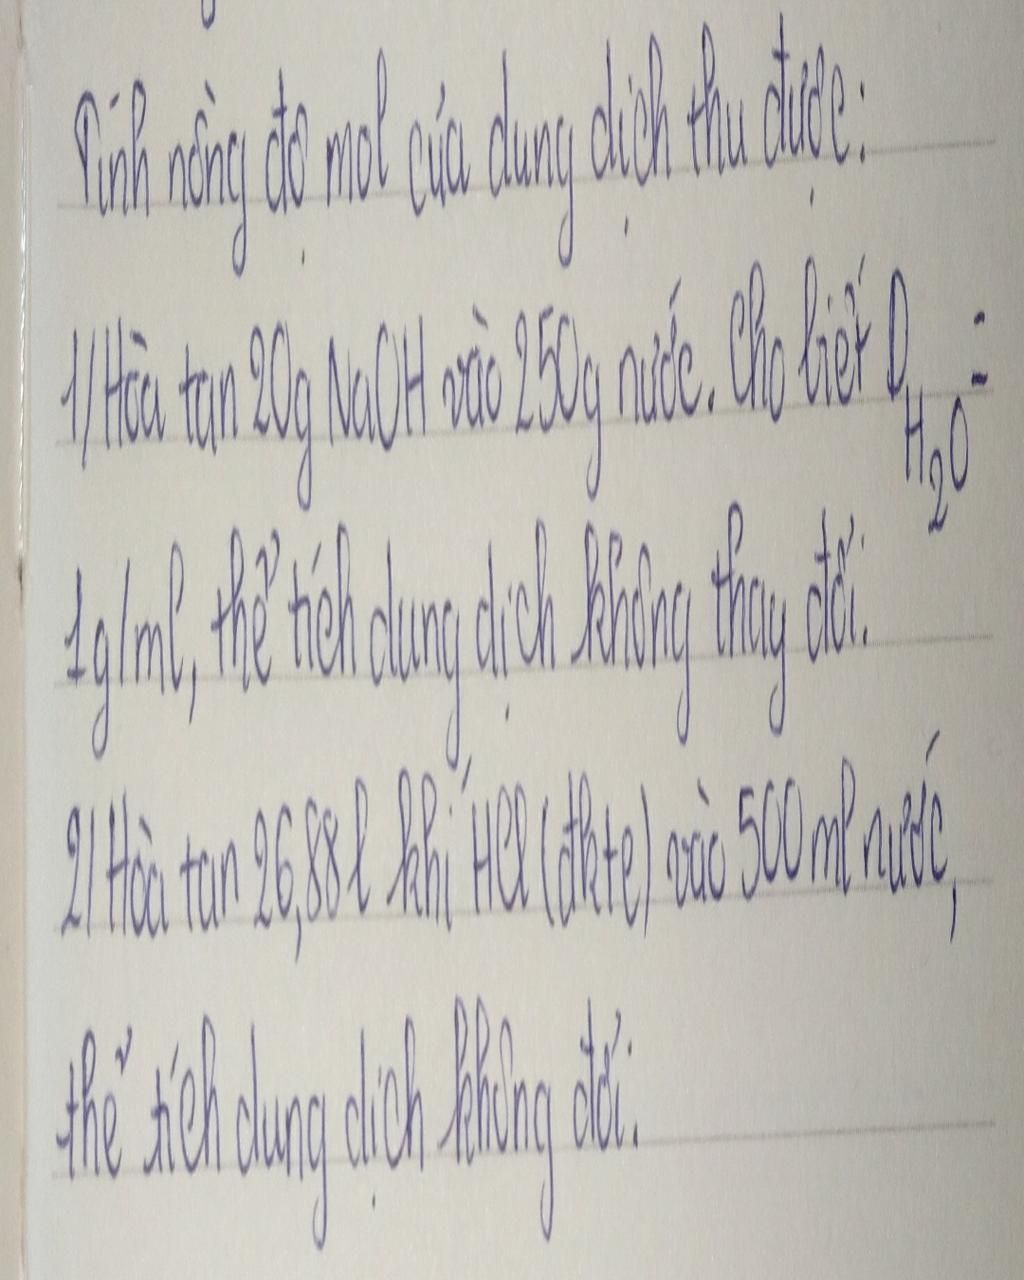 Tính nồng độ mol của dung dịch thu được:
1/ Hòa tan 20g NaOH vào 250g nước. Cho biết D H₂O =
1g/ml, thể tích dung dịch không thay đổi.
2/ Hòa tan 26,88l khí HCl (đktc) vào 500ml nước,
thể tích dung dịch không đổi.